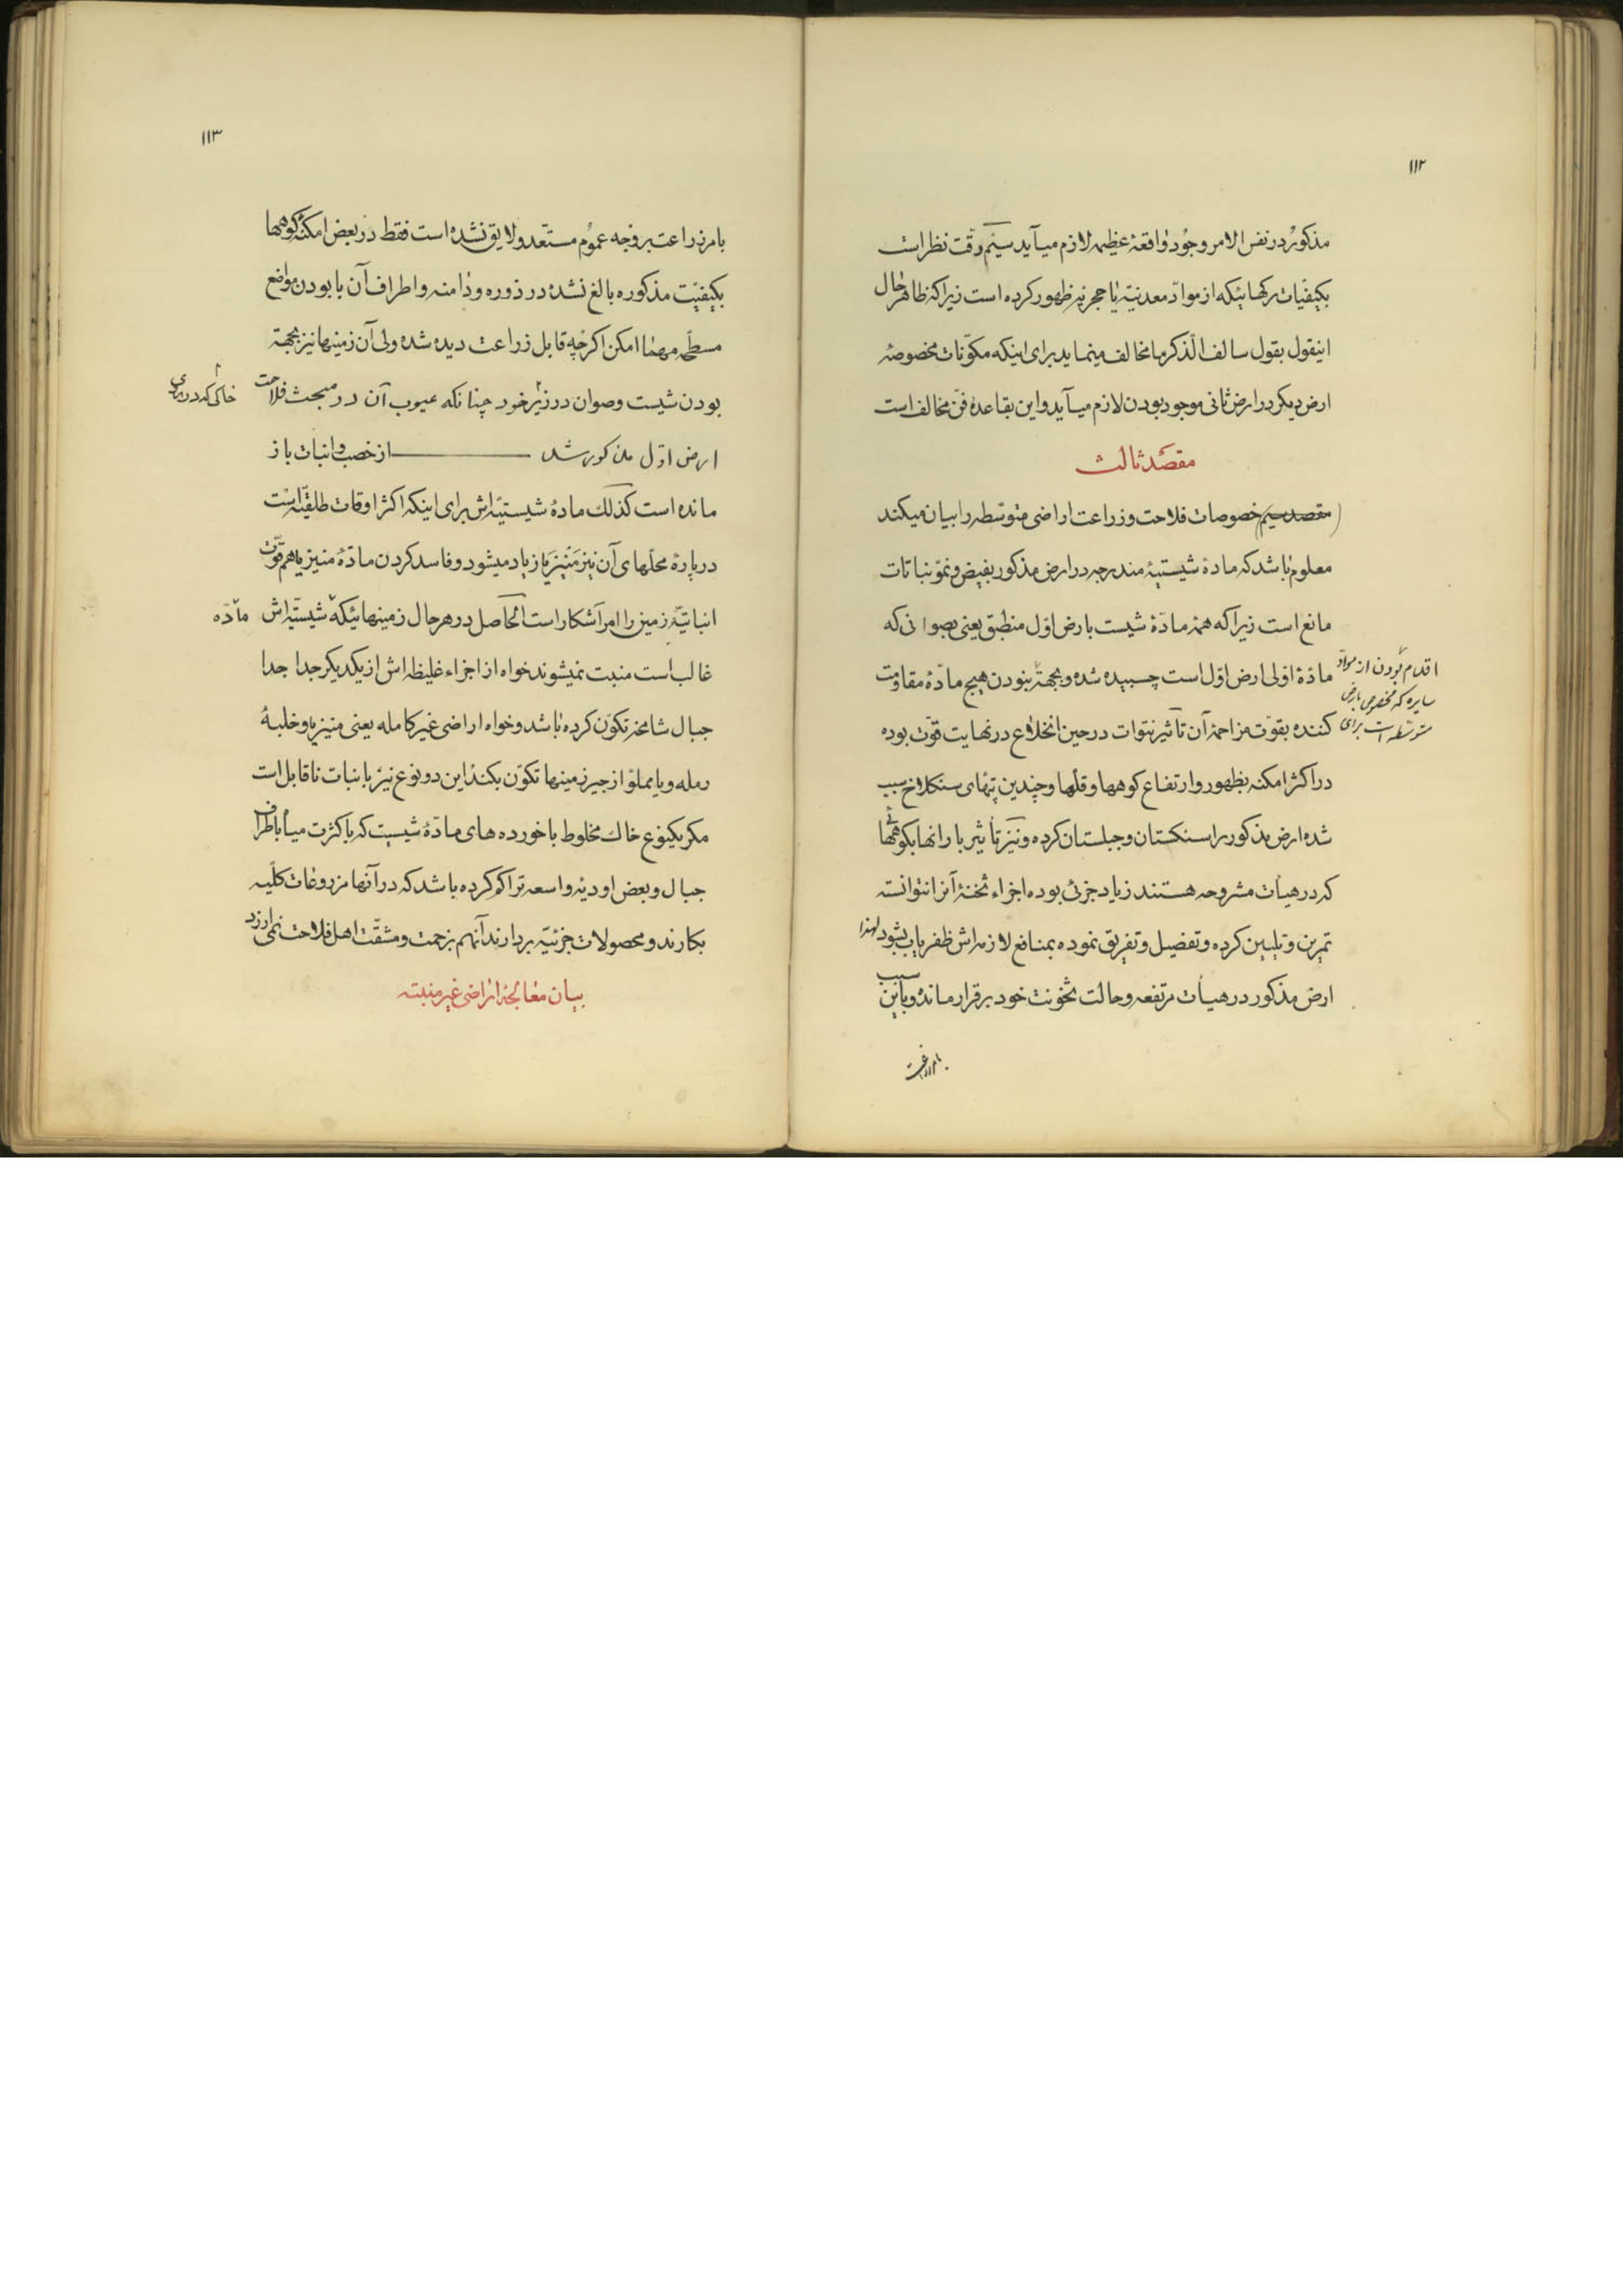 ۱۱۲
مذکور در نفس الامر وجود واقعهٔ عظیمه لازم میآید سیّم دقّت نظر است
بکیفیّات رکهائیکه از موادّ معدنیّه یا حجریّه ظهور کرده است زیرا که ظاهر حال
اینقول بقول سالف الذّکر ما مخالف مینماید برای اینکه مکوّنات مخصوصهٔ
ارض دیکر در ارض ثانی موجود بودن لازم میآید و این بقاعدهٔ فنّ مخالف است
مقصد ثالث
(مقصد سیم) خصوصات فلاحت و زراعت اراضی متوسّطه را بیان میکند
معلوم باشد که مادهٔ شیستیهٔ مندرجه در ارض مذکور بفیض و نموّ نباتات
مانع است زیرا که همهٔ مادّهٔ شیست بارض اوّل منطبق یعنی بصوانی که
مادّهٔ اولی ارض اوّل است چسبیده شده و بجهتهٔ نبودن هیچ مادّهٔ مقاومت
اقدم بودن از موادّ
سایره که مخصوص بارض
متوسّطه است برای
کننده بقوّت مزاحمهٔ آن تأثیر نتوات در حین انخلاع در نهایت قوّت بوده
در اکثر امکنه بظهور و ارتفاع کوهها و قلّها و چندین تپّهای سنکلاخ سبب
شده ارض مذکور را سنکستان و جبلستان کرده و نیز تأثیر بارانها بکوههائی
که در هیأت مشروحه هستند زیاد جزئی بوده اجزاء ثخنهٔ آنرا نتوانسته
تمرین و تلیین کرده و تفصیل و تفریق نموده بمنافع لازمه‌اش ظفریاب بشود لهذا
ارض مذکور در هیأت مرتفعه و حالت ثخونت خود برقرار مانده و باین سبب
بامر زراعت
۱۱۳
بامر زراعت بر وجه عموم مستعد و لایق نشده است فقط در بعض امکنه کوهها
بکیفیّت مذکوره بالغ نشده در ذوره و دامنه و اطراف آن با بودن مواضع
مسطّحه مهما امکن اکرچه قابل زراعت دیده شده ولی آن زمینها نیز بجهتهٔ
بودن شیست و صوان در زیر خود چنانکه عیوب آن در مبحث فلاحت
خاکی که در روی
ارض اوّل مذکور شد از خصب و انبات باز
مانده است کذلک مادهٔ شیستیّه‌اش برای اینکه اکثر اوقات طلقیّه است
در پارهٔ محلّهای آن نیز منیزیا زیاد میشود و فاسد کردن مادّهٔ منیزیا هم قوّت
انباتیّهٔ زمین را امر آشکار است الحاصل در هر حال زمینهائیکه شیستیّه‌اش
مادّه
غالب است منبت نمیشوند خواه از اجزاء غلیظه‌اش از یکدیکر جدا جدا
جبال شامخه تکوّن کرده باشد و خواه اراضی غیر کامله یعنی منیزیا و خلبهٔ
رمله و یا مملوّ از جیر زمینها تکوّن بکند این دو نوع نیز بانبات ناقابل است
مکر یکنوع خاک مخلوط با خورده‌های مادّهٔ شیست که با کثرت میاه باطراف
جبال و بعض اودیهٔ واسعه تراکم کرده باشد که در آنها مزروعات کلّیه
بکارند و محصولات جزئیّه بردارند آنهم بزحمت و مشقّت اهل فلاحت نمی‌ارزد
بیان معالجهٔ اراضی غیر منبته